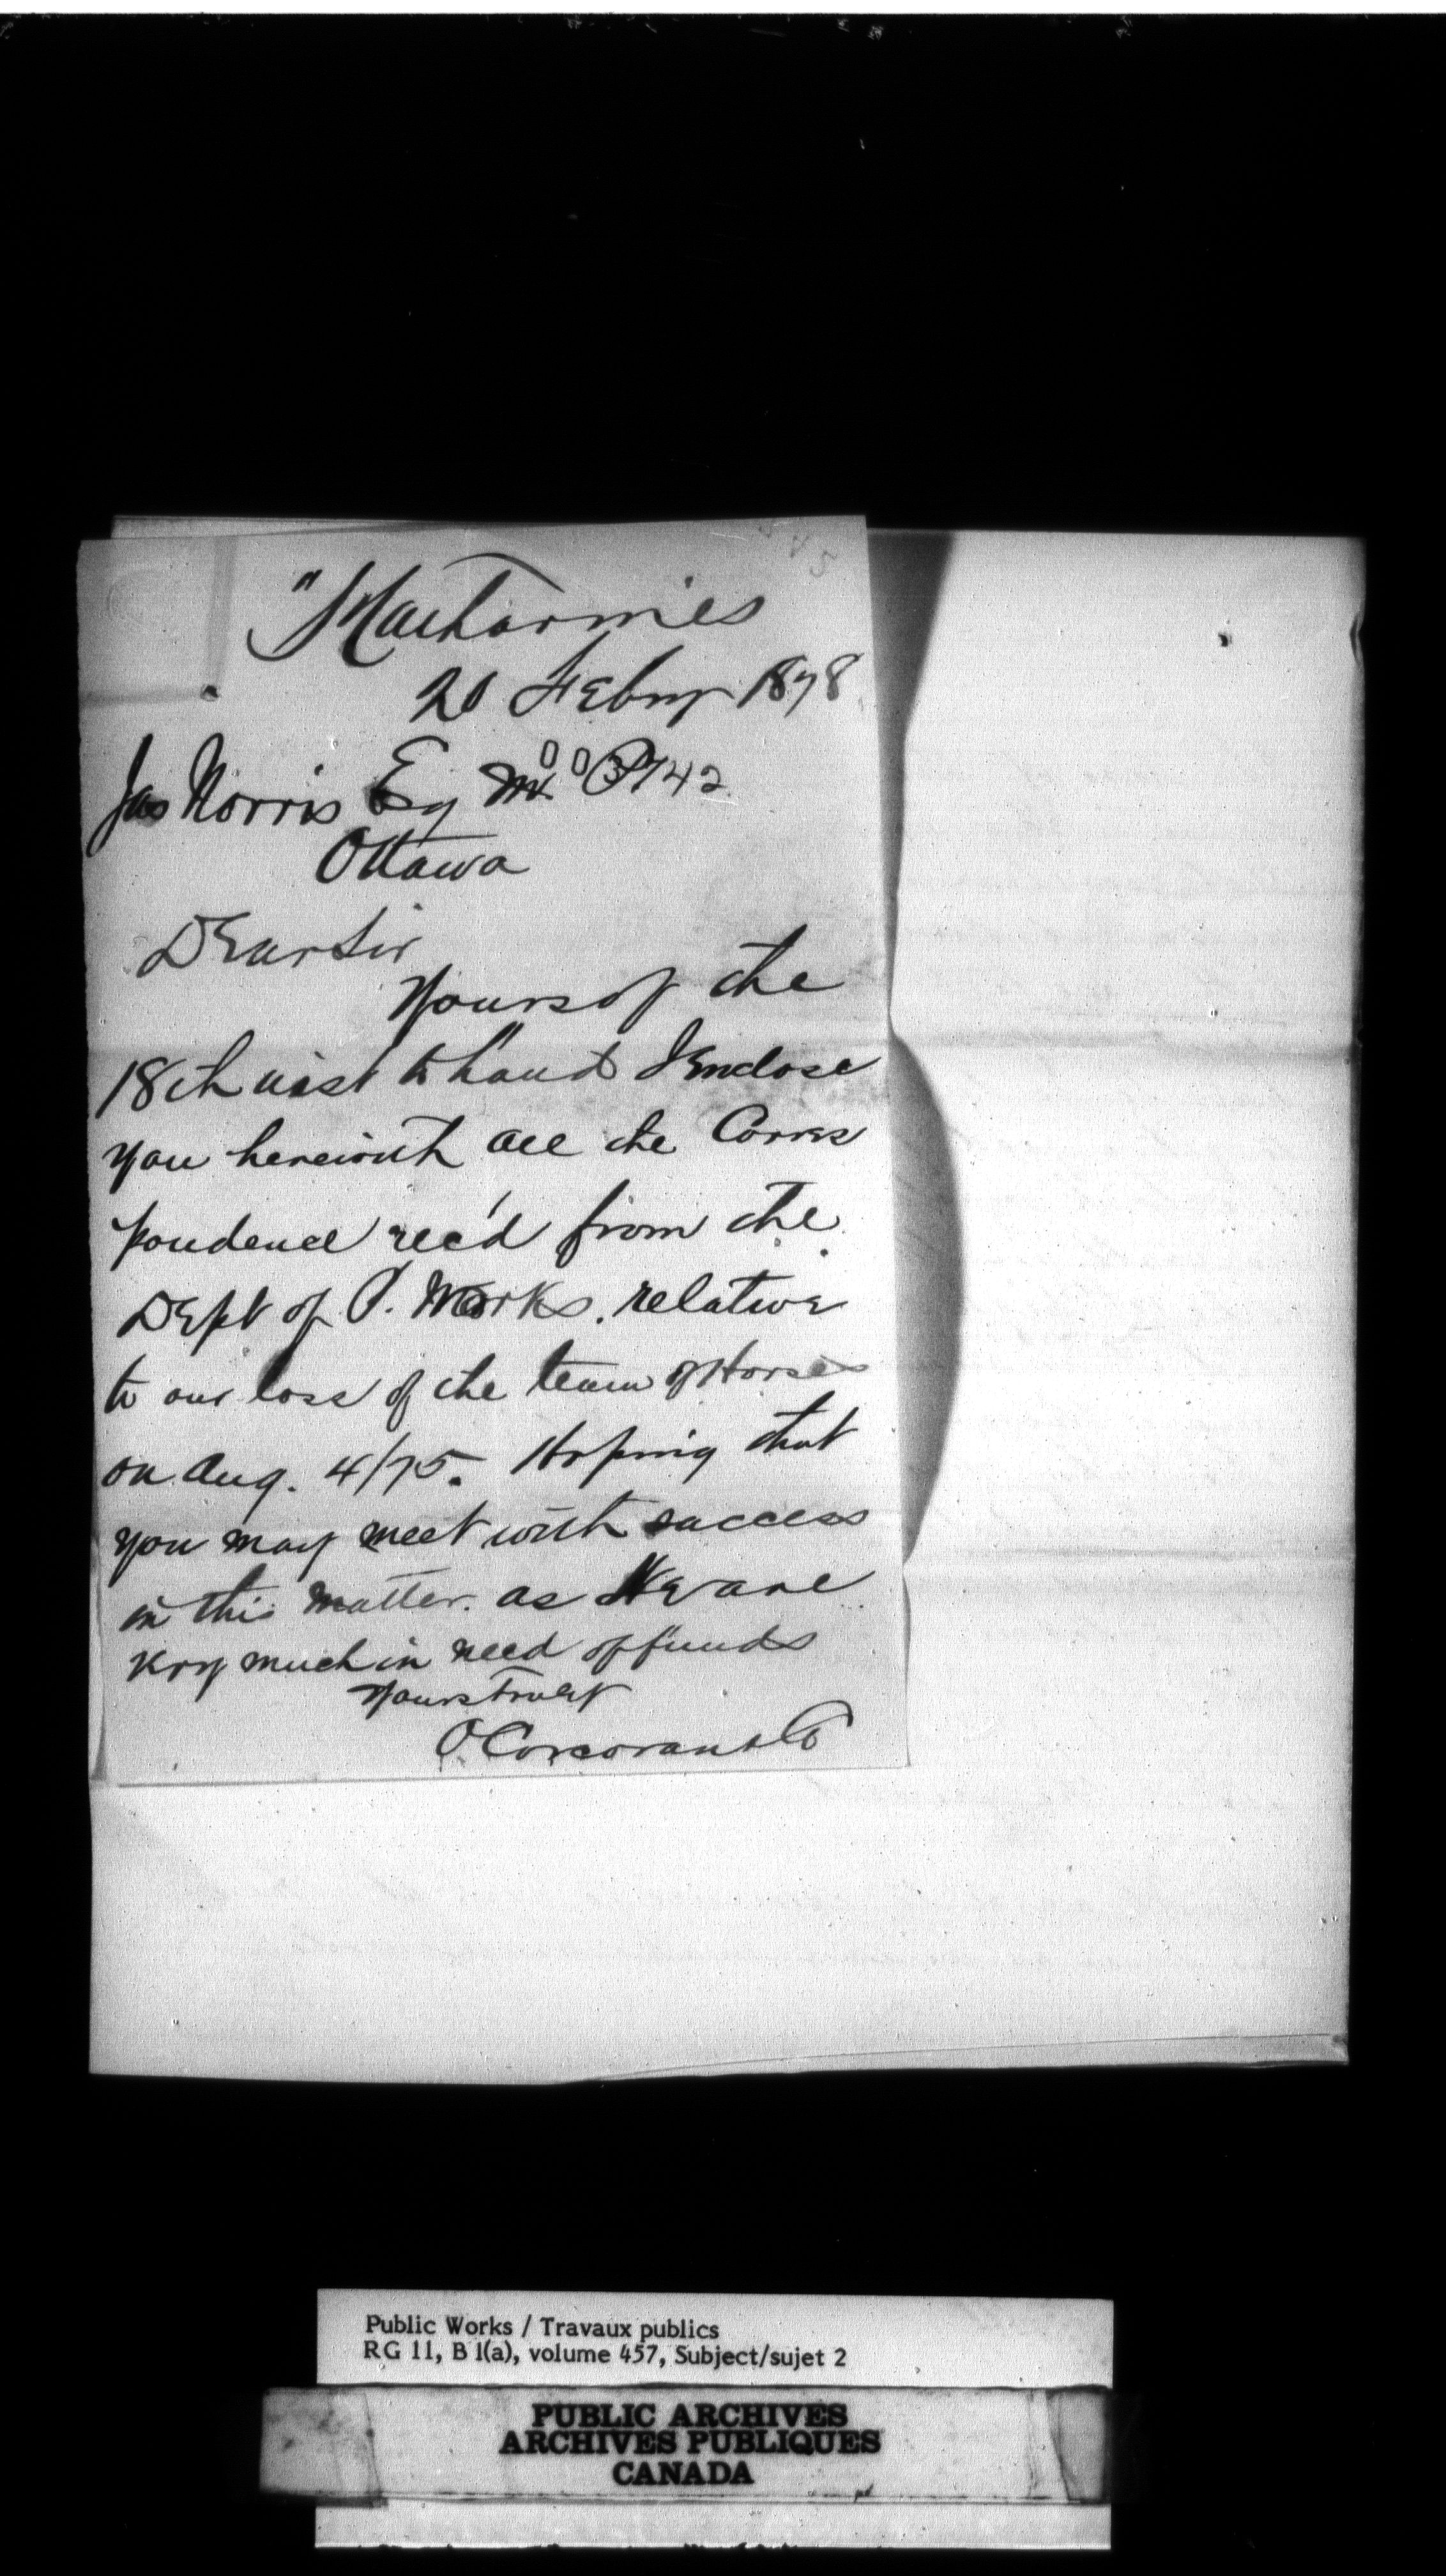 St Catharines
20 Febry 1878
Jas Norris Esq M.P.
742
Ottawa
Dear Sir
Yours of the
18th inst to hand I Enclose
you herewith all the Corres
pondence rec'd from the
Dept of P. Works. relative
to our loss of the team of Horses
on Aug. 4/75. Hoping that
you may meet with success
in this matter. as We are
very much in need of funds
Yours Truly
O'Corcoran & Co
Public Works / Travaux publics
RG 11, B 1(a), volume 457, Subject/sujet 2
PUBLIC ARCHIVES
ARCHIVES PUBLIQUES
CANADA